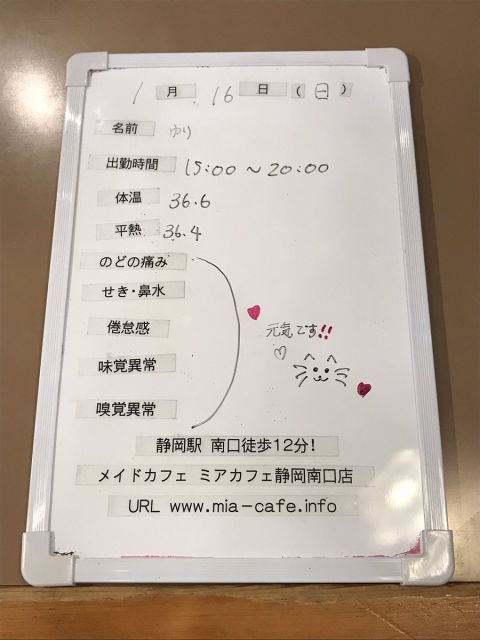 1月16日(日)
名前 ゆり
出勤時間 15:00～20:00
体温 36.6
平熱 36.4
のどの痛み
せき・鼻水
倦怠感
元気です!!
味覚異常
嗅覚異常
静岡駅 南口徒歩12分!
メイドカフェ ミアカフェ静岡南口店
URL www.mia-cafe.info